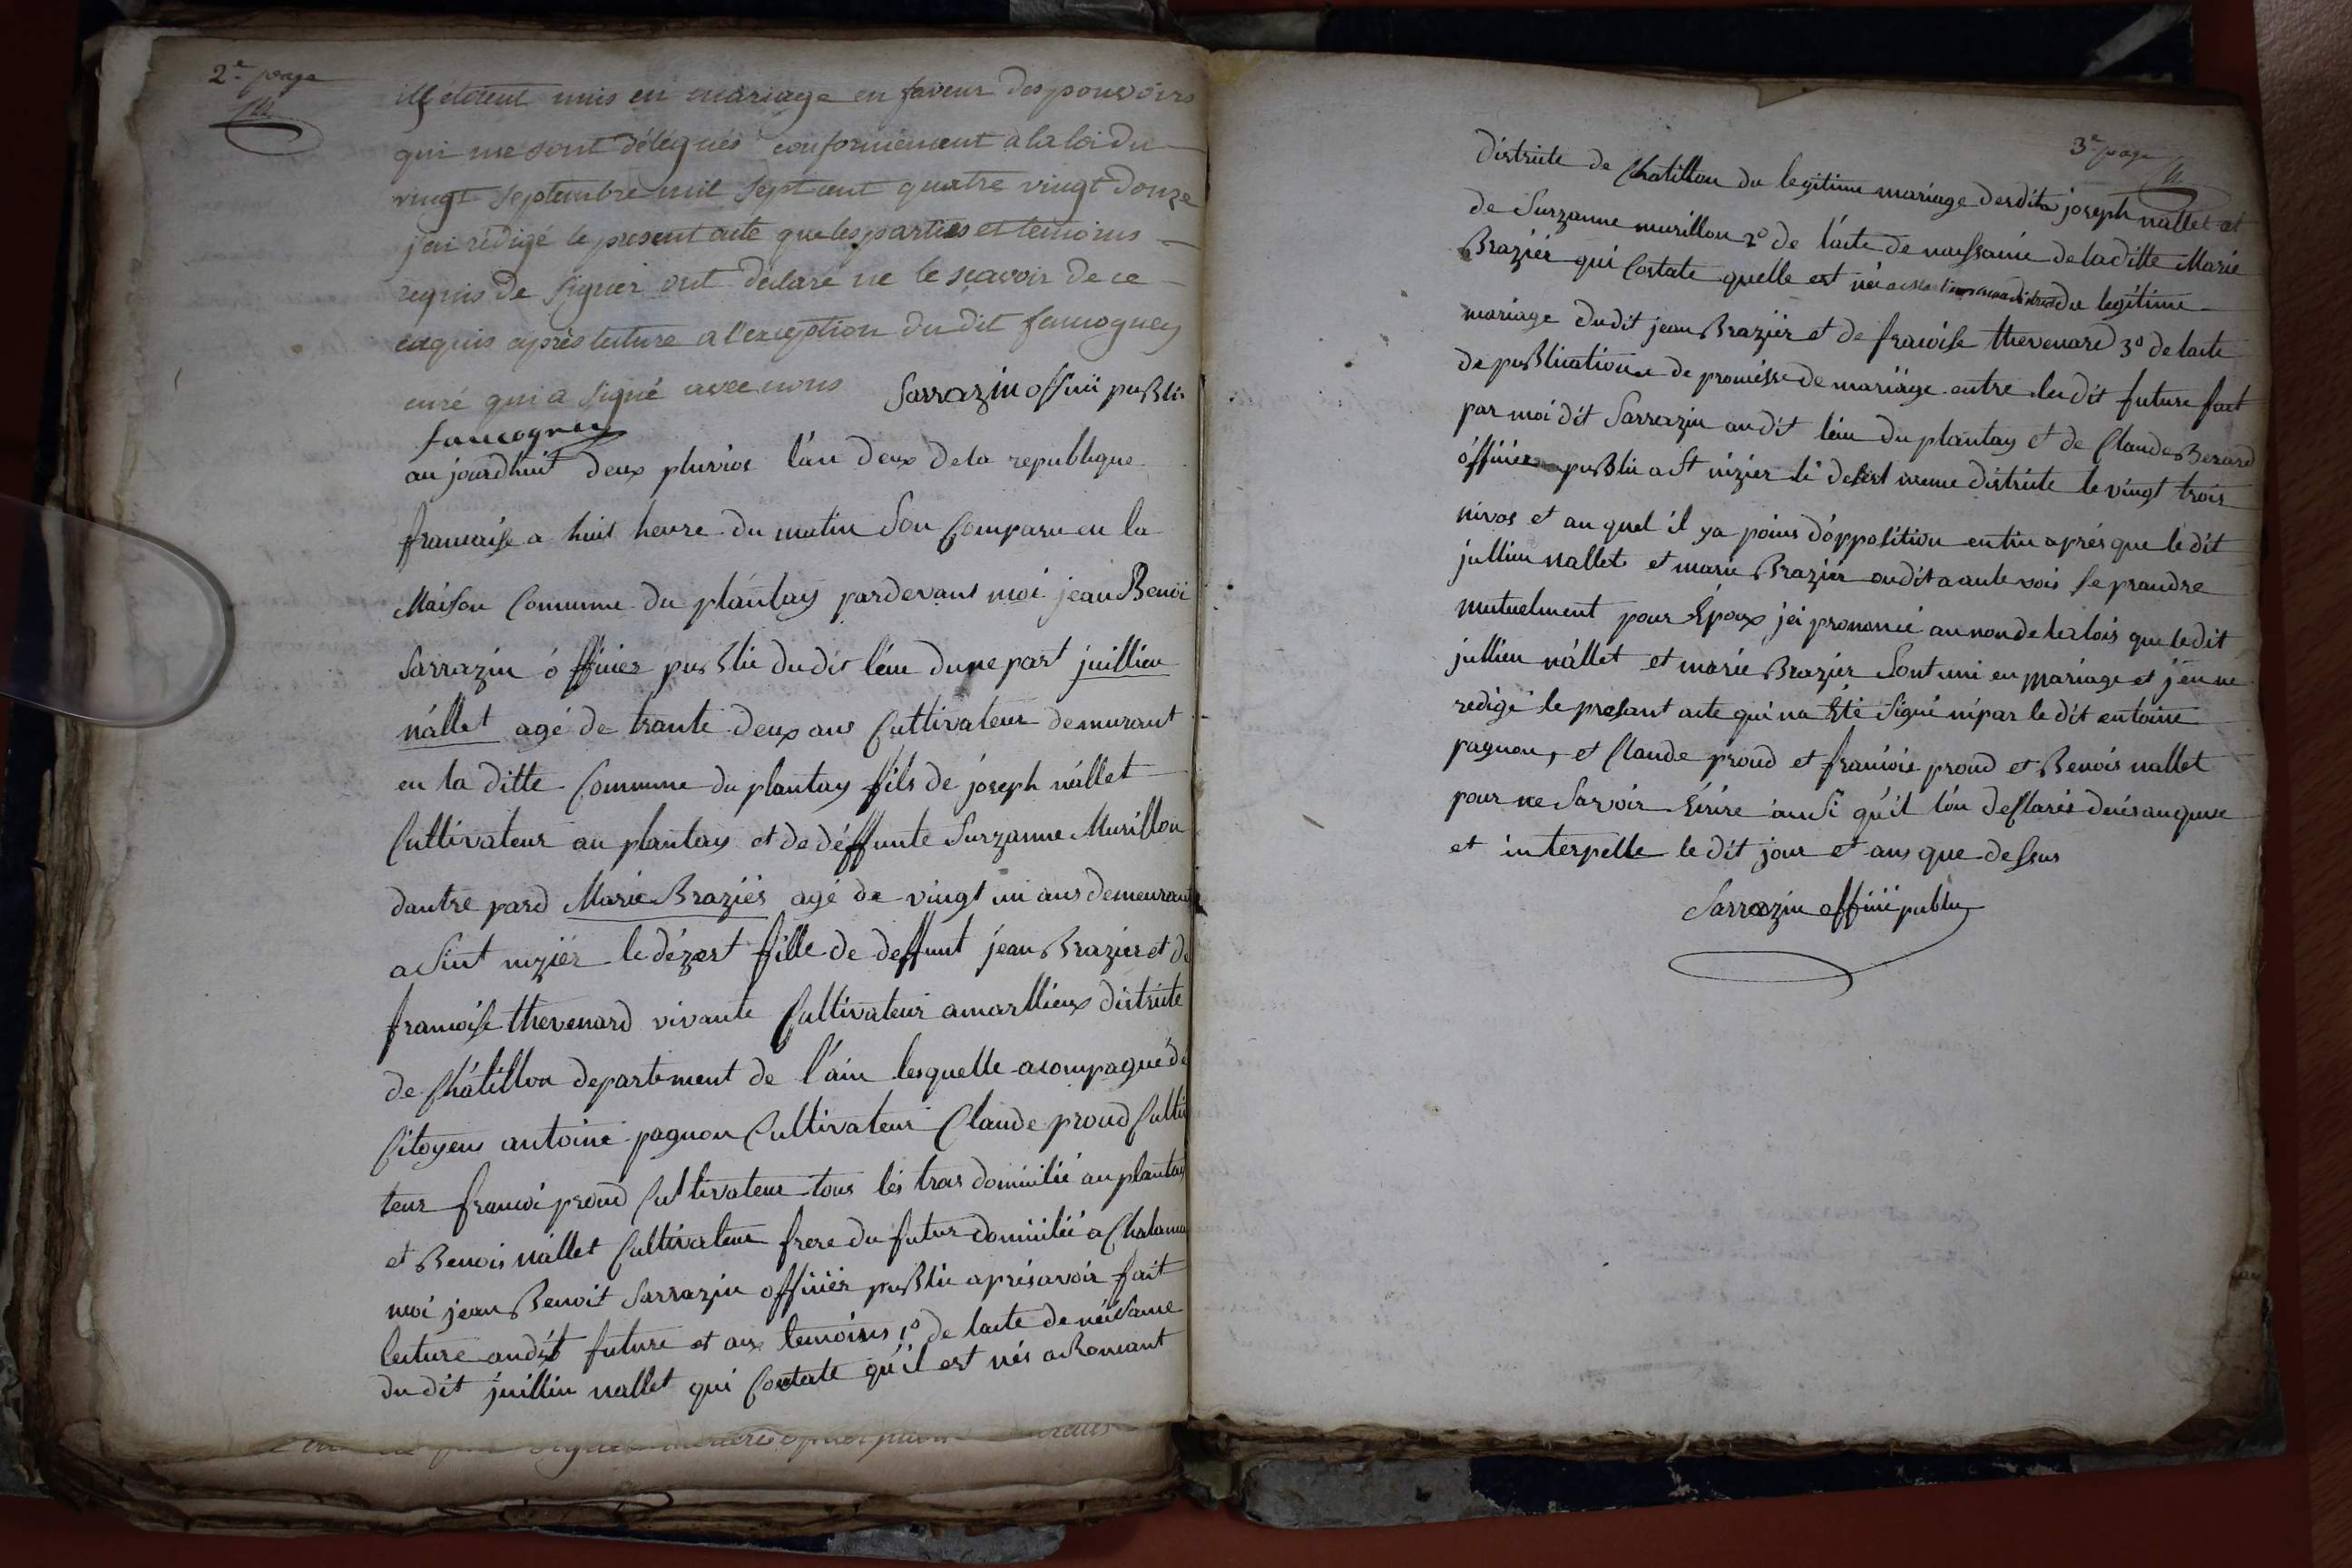 2e page
ils étoient unis en mariage en faveur des pouvoirs
qui me sont délégués conformement a la loi du
vingt septembre mil sept cent quatre vingt donze
j'ai rédigé le present acte que les parties et temoins
requis de signer ont déclaré ne le scavoir de ce
enquis après lecture a l'exception du dit faucogney
curé qui a signé avec nous Sarrazin officii publi
faucogney
au jourdhuit deux pluvios l'an deux de la republique
francaise a huit heure du matin Son Comparu en la
Maison Commune du plantay pardevant moi jean Benoi
Sarrazin officier public du dit lieu dune part juillien
nállet agé de trante deux ans Cultivateur demurant
en la ditte Commune du plantay fils de joseph nállet
Cultivateur au plantay et de déffunte Surzanne Murillon
dautre pard Marie Braziér agé de vingt un ans demeurant
a Sint niziér le dézert fille de deffunt jean Brazier et de
francoise thevenard vivante Cultivateur a marllieux districte
de Chátillon departement de l'ain lesquelle acompagné de
Citoyens antoine pagnon Cultivateur Claude proud Culti
teur francoi proud Cultivateur tous les tras domicilié au plantay
et Benois nállet Cultivateur frere du futur domicilié a Chalamo
moi jean Benoit Sarrazin officier public aprés avoir fait
lecture audit future et aux temoins 1o de lacte de néésance
du dit juillin nallet qui Constate qu'il est nés a Romant
3e page
districte de Chatillon du legitime mariage desdits joseph nallet et
de Surzanne murillon 2o de l'acte de naissance de la ditte Marie
Braziér qui Costate quelle est née du legitime
mariage du dit jean Braziér et de francoise thevenard 3o de lacte
de publication de promisse de mariage entre les dit future fait
par moi dit Sarrazin au dit lieu du plantay et de Claude Berard
officier public a St nizier le desert meme districte le vingt trois
nivos et au quel il ya poins d'oppositiou entin aprés que le dit
jullien nallet et marie Braziér on dit a aute vois se prandre
mutuelment pour Époux j'ei prononcé au non de la lois que le dit
jullien nállet et marie Brazier Sont uni en mariage et j'en ne
redigé le presant acte qui na Eté signé ni par le dit entoine
pagnon, et Claude proud et francois proud et Benois nallet
pour ne Savoir Écrire ainsi qu'il l'on desclarés
et interpelle le dit jour et ans que dessus
Sarrazin officii public